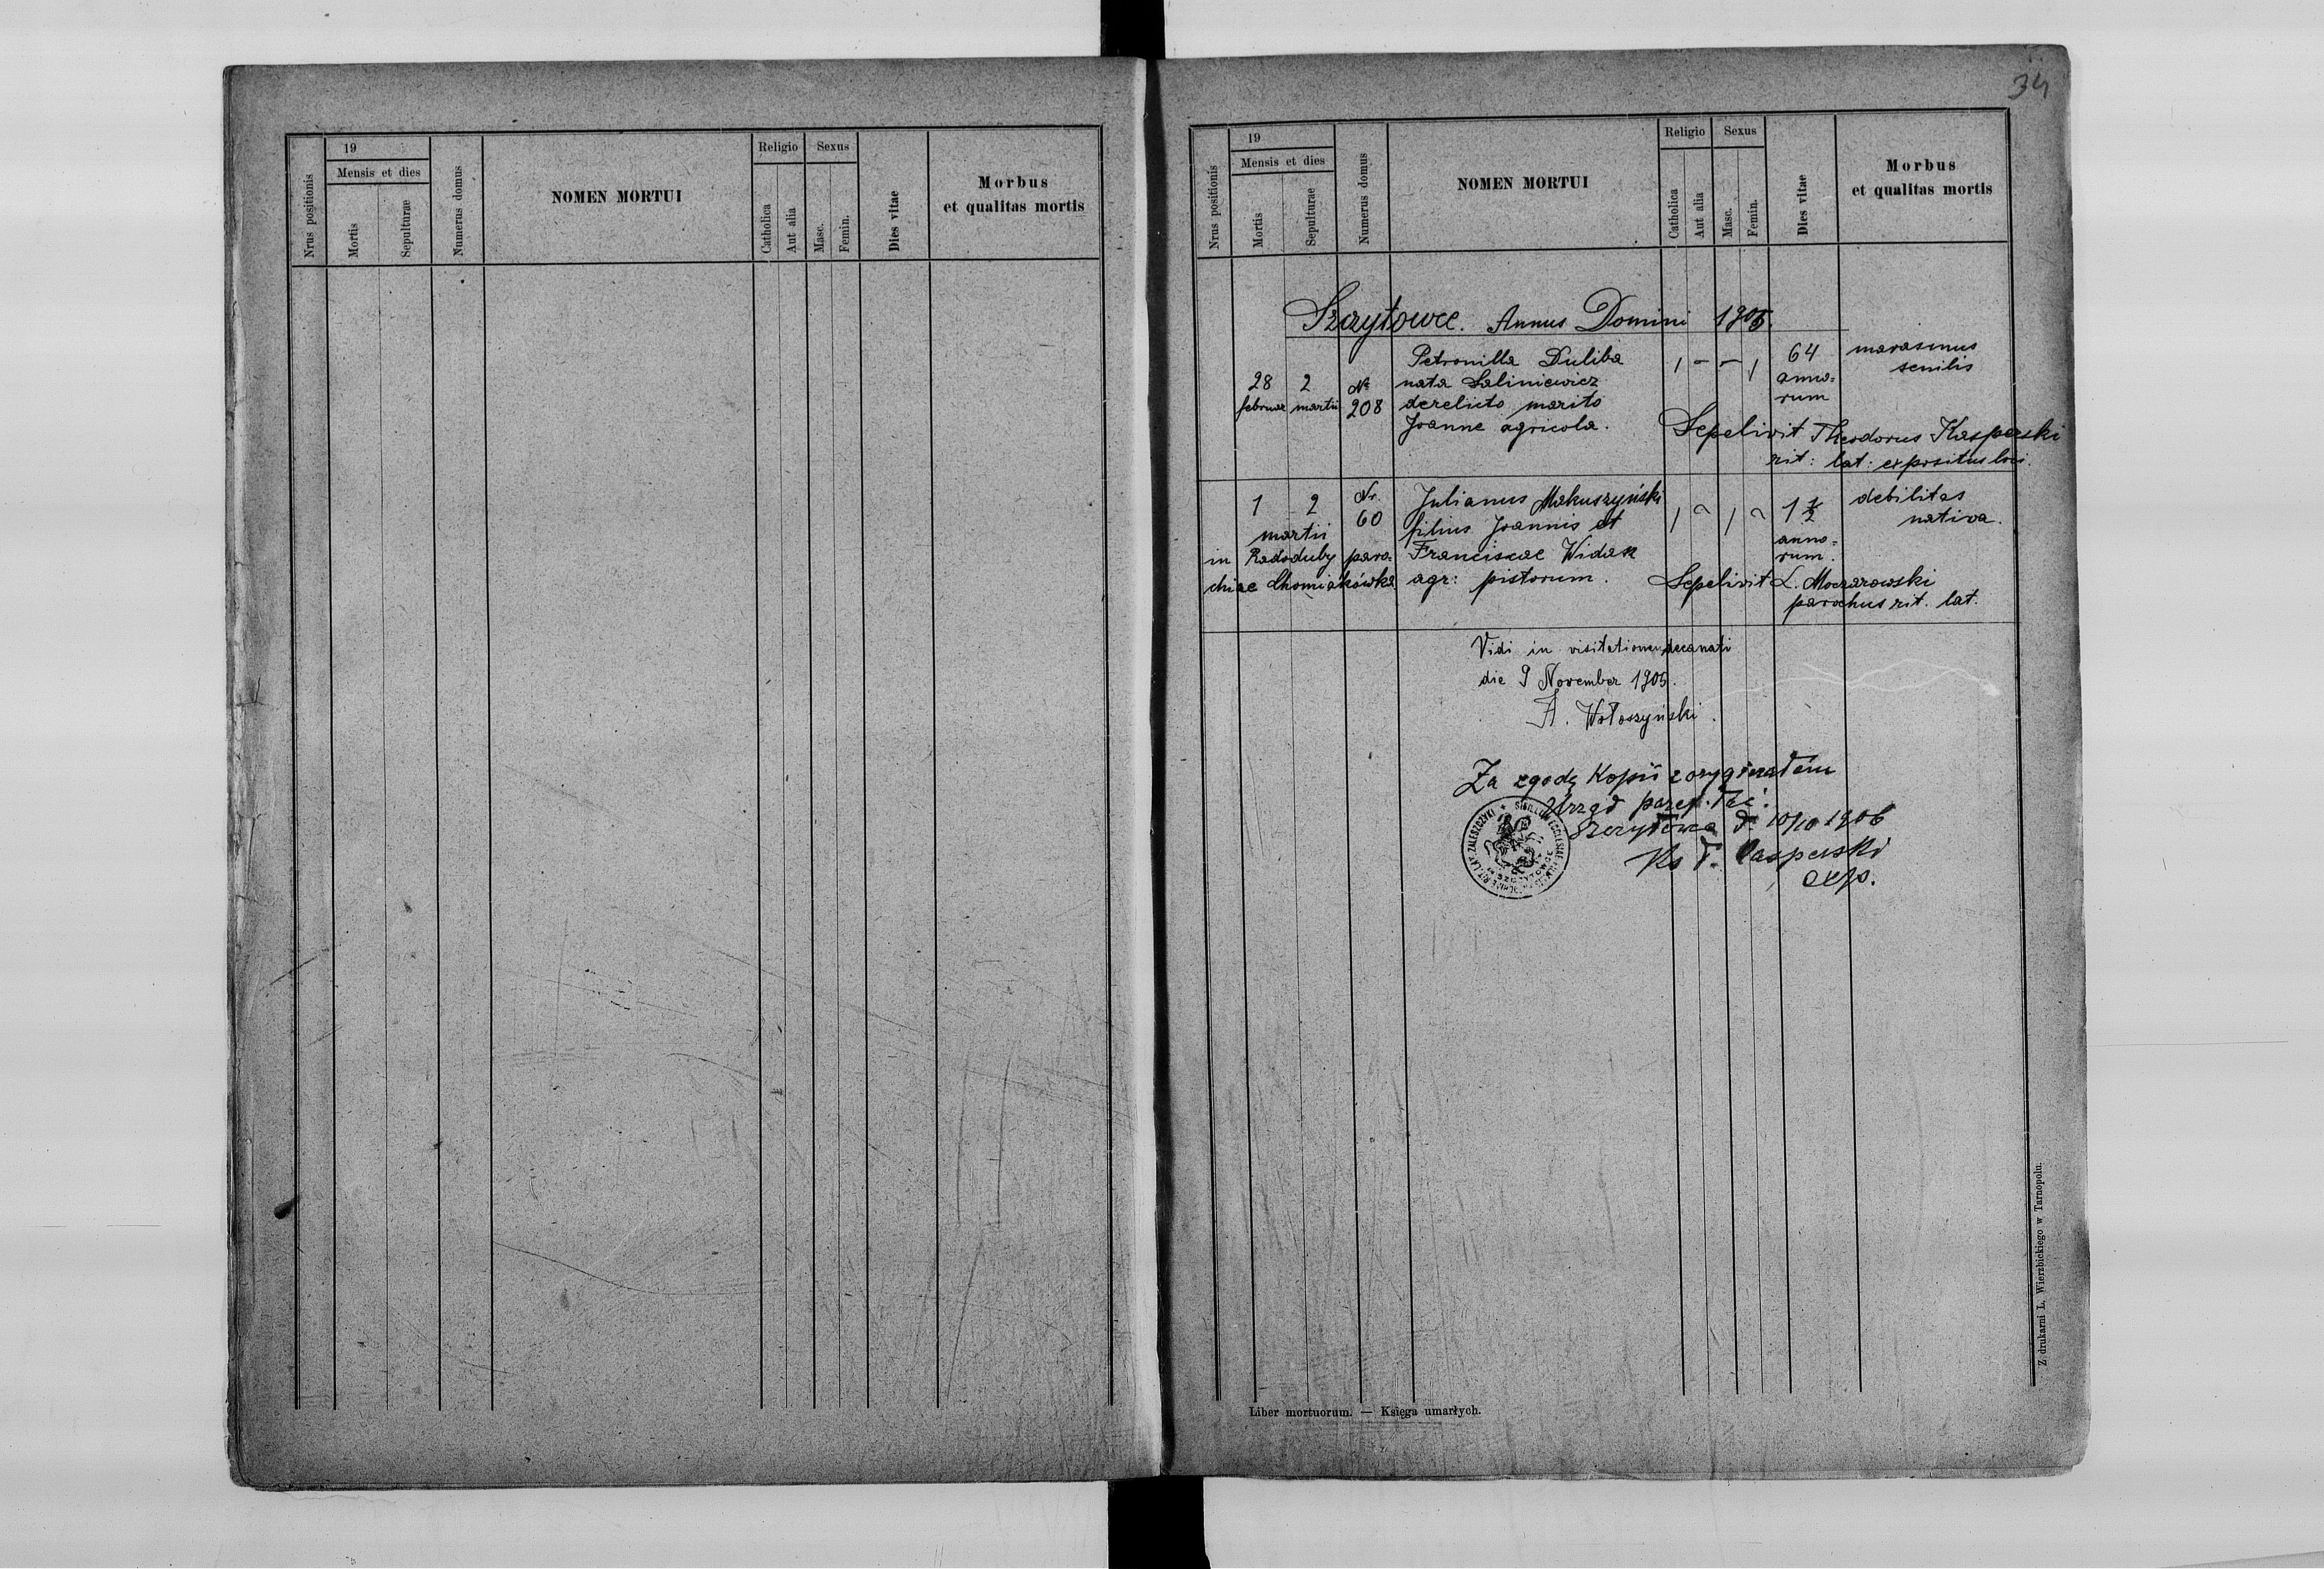 34
19
Mensis et dies
Religio
Sexus
Nrus positionis
Mortis
Sepulturae
Numerus domus
NOMEN MORTUI
Catholica
Aut alia
Masc.
Femin.
Dies vitae
Morbus
et qualitas mortis
19
Mensis et dies
Religio
Sexus
Nrus positionis
Mortis
Sepulturae
Numerus domus
NOMEN MORTUI
Catholica
Aut alia
Masc.
Femin.
Dies vitae
Morbus
et qualitas mortis
Szczytowce. Annus Domini 1905.
Petronilla Duliba 1 – – 1 64 marasmus
28 2 No nata Saliniewicz anno= senilis
februar martii 208 derelicto marito rum
Joanne agricola.
Sepelivit Theodorus Kasperski
rit: lat: expositus loci.
1 2 Nr. Julianus Makuszyński 1 1 1 ½ debilitas
martii 60 filius Joannis et anno= nativa.
in Radoduby paro= Franciscae Widak rum.
chiae Chomiakówka agr: pistorum. Sepelivit L. Moczarowski
parochus rit. lat.
Vidi in visitatione decanali
die 9 November 1905.
A. Wołoszyński.
Za zgodę kopii z oryginałem
Urząd paraf.
Szczytowce d. 10/10 1906
Ks T. Kasperski
exp.
Liber mortuorum. — Księga umarłych.
Z drukarni L. Wierzbickiego w Tarnopolu.